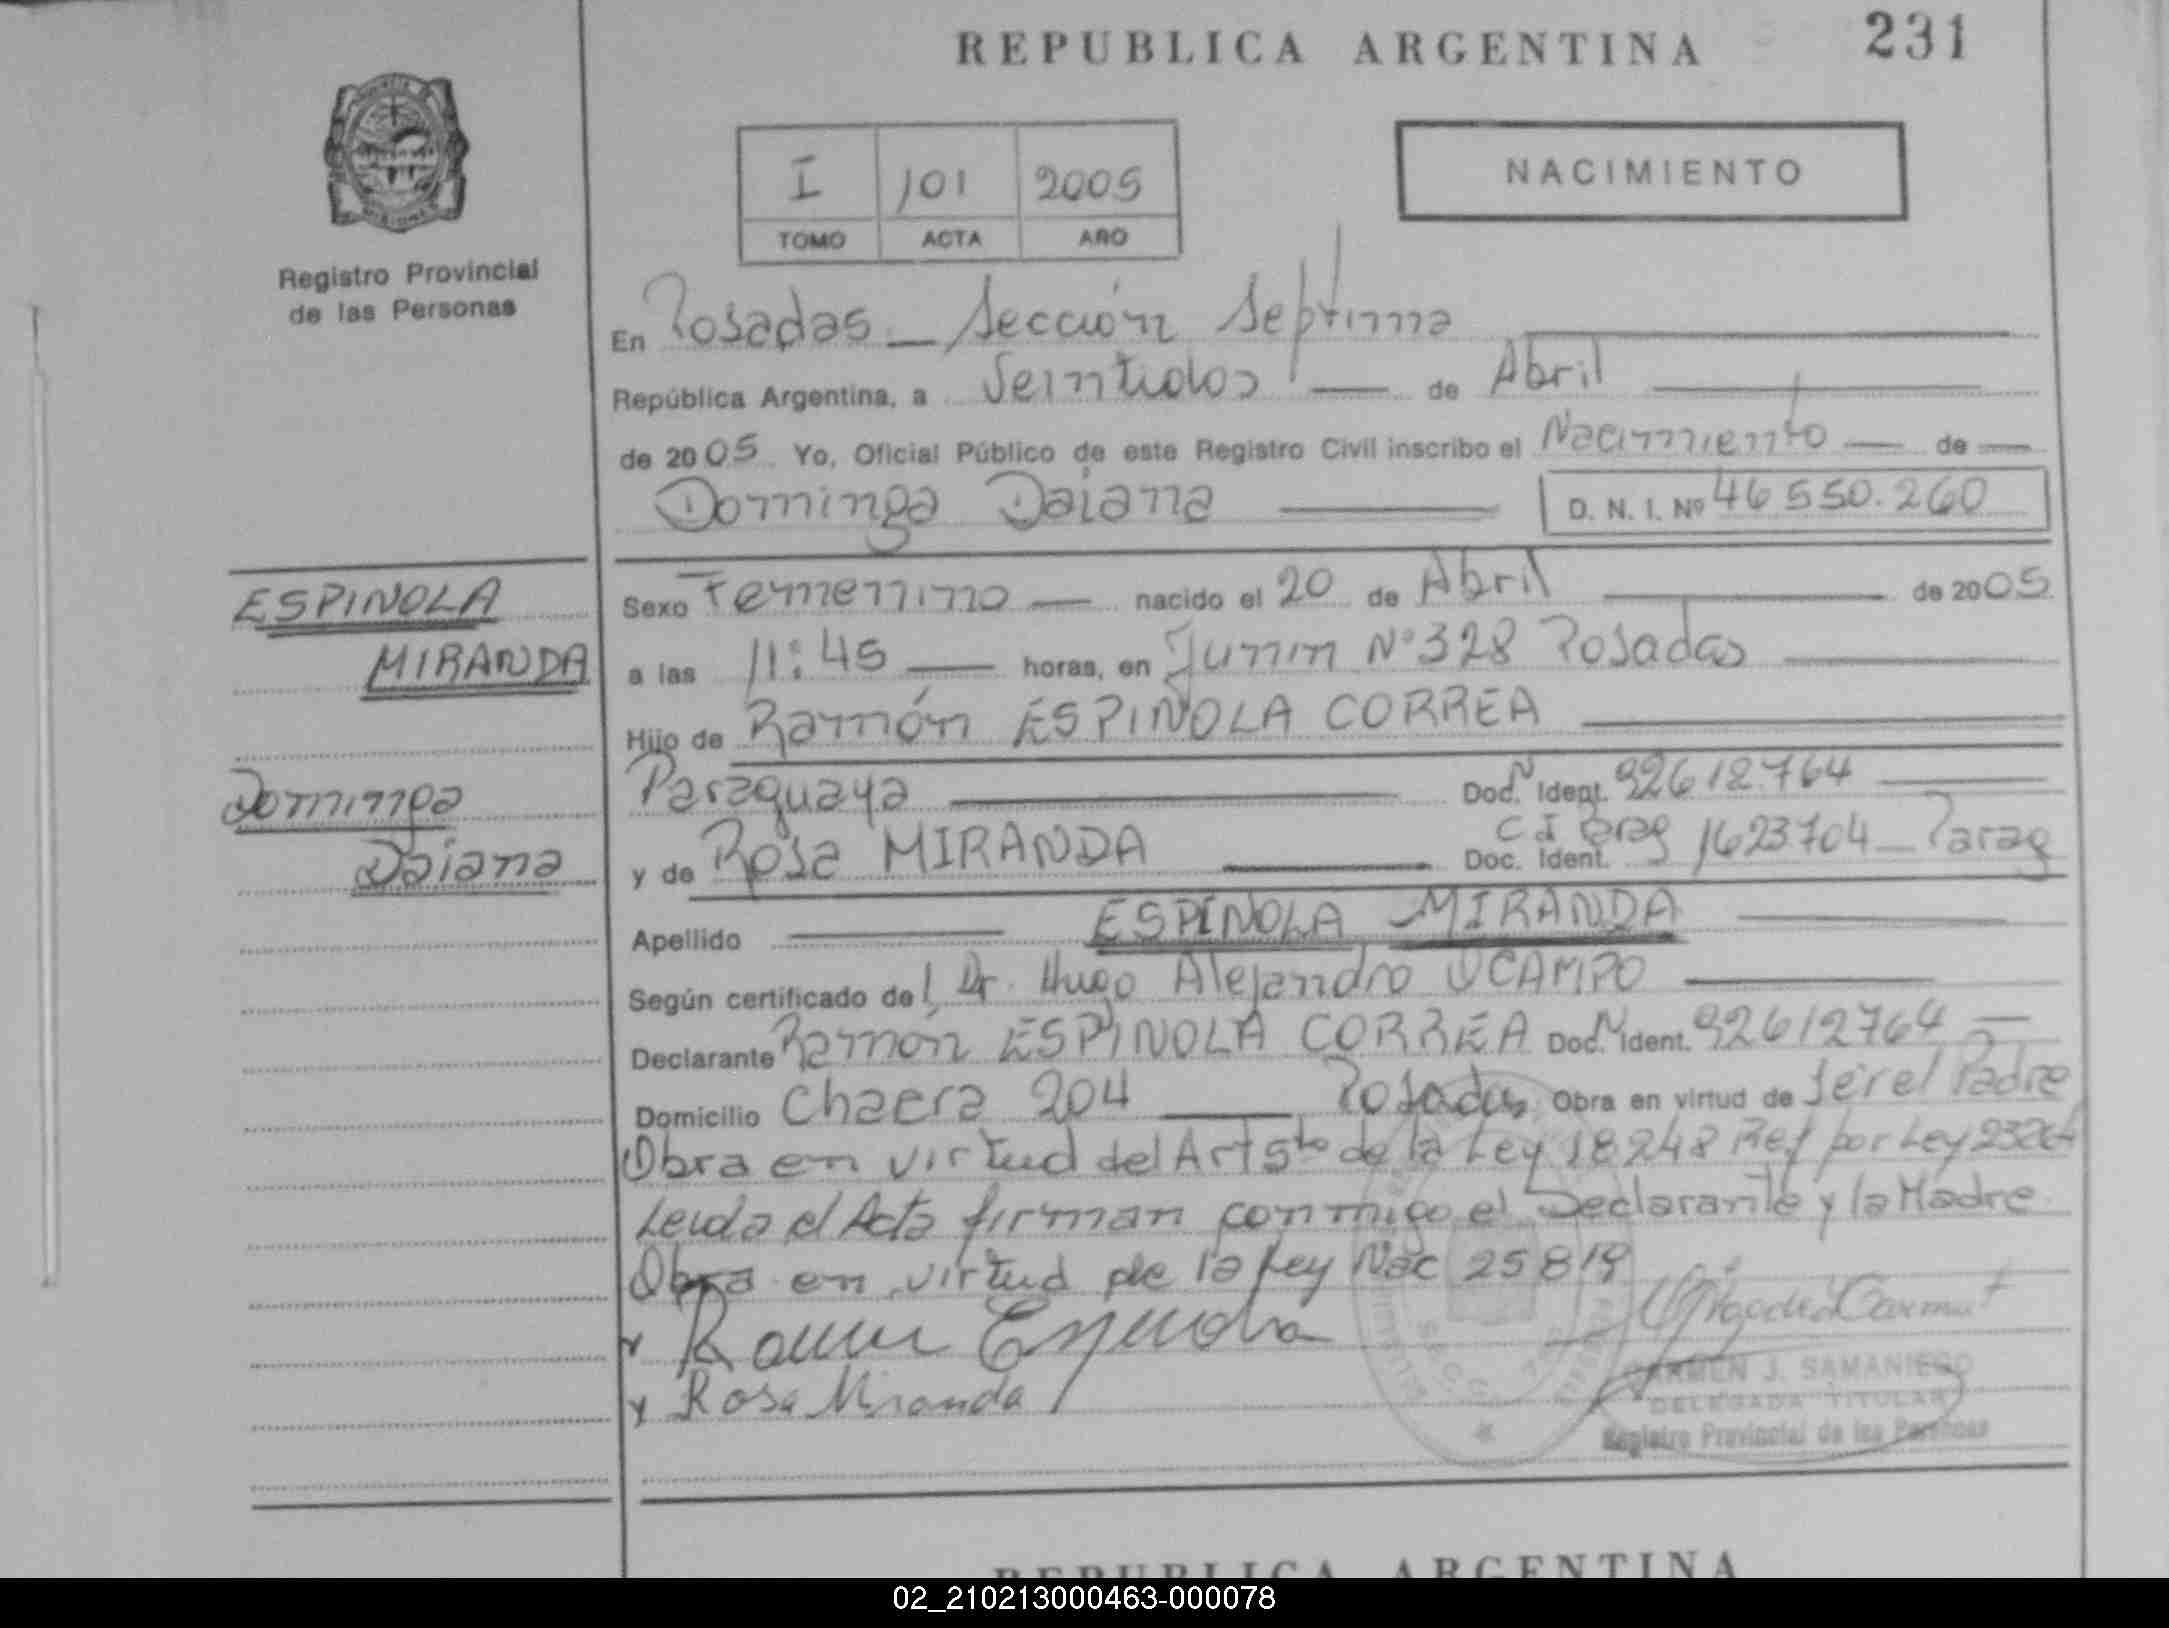 REPUBLICA ARGENTINA 231
I 101 2005
TOMO ACTA AÑO
NACIMIENTO
Registro Provincial
de las Personas
En Posadas - Sección Septima
República Argentina, a Veintidos de Abril
de 2005 Yo, Oficial Público de este Registro Civil inscribo el Nacimiento de
Dominga Daiana D. N. I. Nº 46 550.260
ESPINOLA
MIRANDA
Dominga
Daiana
Sexo Femenino nacido el 20 de Abril de 2005
a las 11:45 horas, en Junin Nº 328 Posadas
Hijo de Ramón ESPINOLA CORREA
Paraguaya Doc. Ident. 92612.764
y de Rosa MIRANDA Doc. Ident. C I Parag 1623704 - Parag
Apellido ESPINOLA MIRANDA
Según certificado del Dr. Hugo Alejandro OCAMPO
Declarante Ramón ESPINOLA CORREA Doc. Ident. 92612764
Domicilio Chacra 204 Posadas Obra en virtud de Ser el Padre
Obra en virtud del Art 5to de la Ley 18248 Ref por Ley 23264
Leida el Acta firman conmigo el Declarante y la Madre
Obra en virtud de la Ley Nac 25819
x Ramon Espinola
x Rosa Miranda
CARMEN J. SAMANIEGO
DELEGADA TITULAR
Registro Provincial de las Personas
REPUBLICA ARGENTINA
02_210213000463-000078